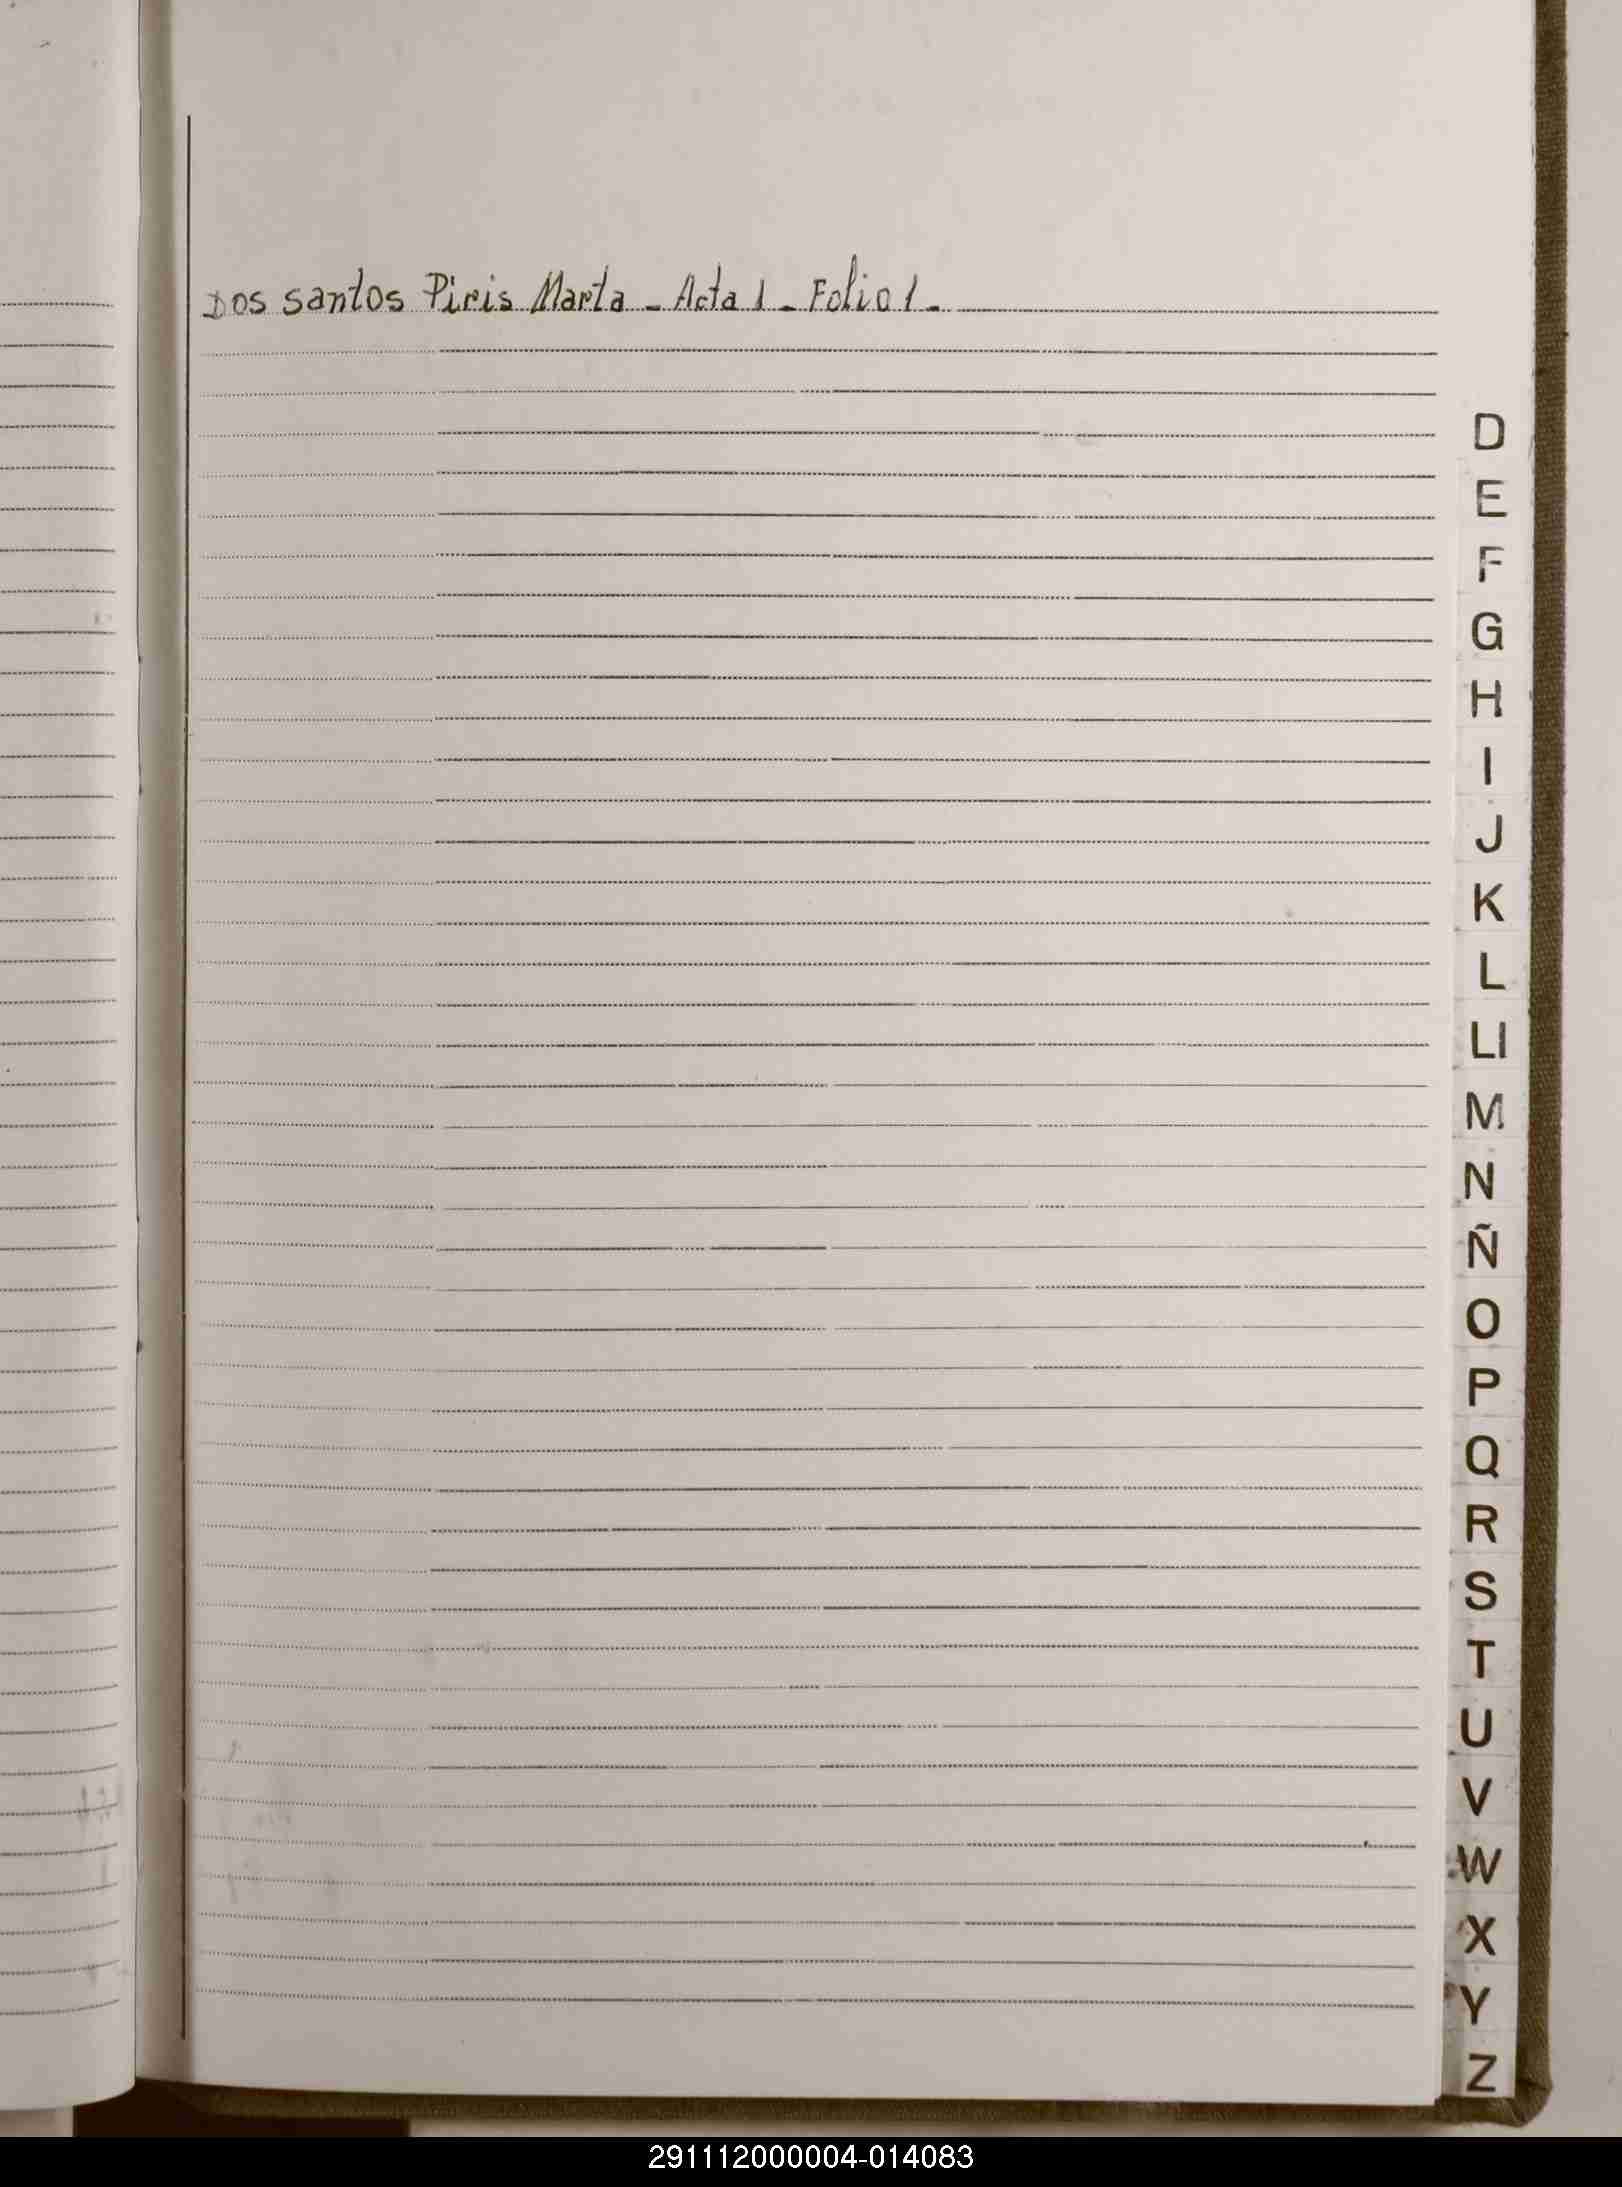 Dos santos Piris Marta - Acta 1 - Folio 1 -
D
E
F
G
H
I
J
K
L
Ll
M
N
Ñ
O
P
Q
R
S
T
U
V
W
X
Y
Z
291112000004-014083